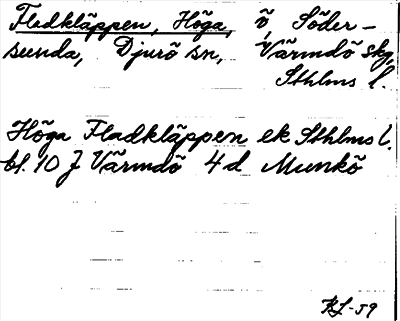 Fladkläppen, Höga, ö Söder-
sunda, Djurö sn, Värmdö skg,
Sthlms l.
Höga Fladkläppen ek Sthlms l.
bl. 10 J Värmdö 4d Munkö
RL-59